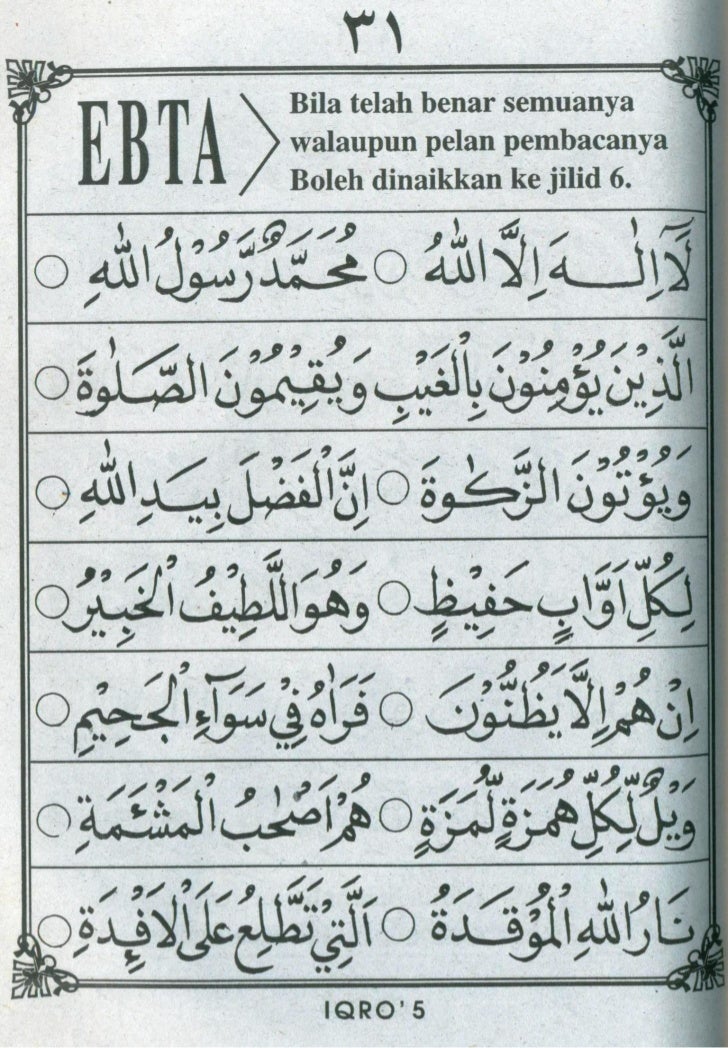 ٣١
EBTA
Bila telah benar semuanya
walaupun pelan pembacanya
Boleh dinaikkan ke jilid 6.
لَآاِلٰــهَ اِلَّا اللّٰهُ ○ مُحَمَّدٌ رَّسُوْلُ اللّٰهِ ○
الَّذِيْنَ يُؤْمِنُوْنَ بِالْغَيْبِ وَيُقِيْمُوْنَ الصَّلٰوةَ ○
وَيُؤْتُوْنَ الزَّكٰوةَ ○ اِنَّ الْفَضْلَ بِيَدِ اللّٰهِ ○
لِكُلِّ اَوَّابٍ حَفِيْظٍ ○ وَهُوَ اللَّطِيْفُ الْخَبِيْرُ ○
اِنْ هُمْ اِلَّا يَظُنُّوْنَ ○ فَرَاٰهُ فِيْ سَوَآءِ الْجَحِيْمِ ○
وَيْلٌ لِّكُلِّ هُمَزَةٍ لُّمَزَةٍ ○ هُمْ اَصْحٰبُ الْمَشْئَمَةِ ○
نَارُ اللّٰهِ الْمُوْقَدَةُ ○ اَلَّتِيْ تَطَّلِعُ عَلَى الْاَفْـِٕدَةِ ○
IQRO'5